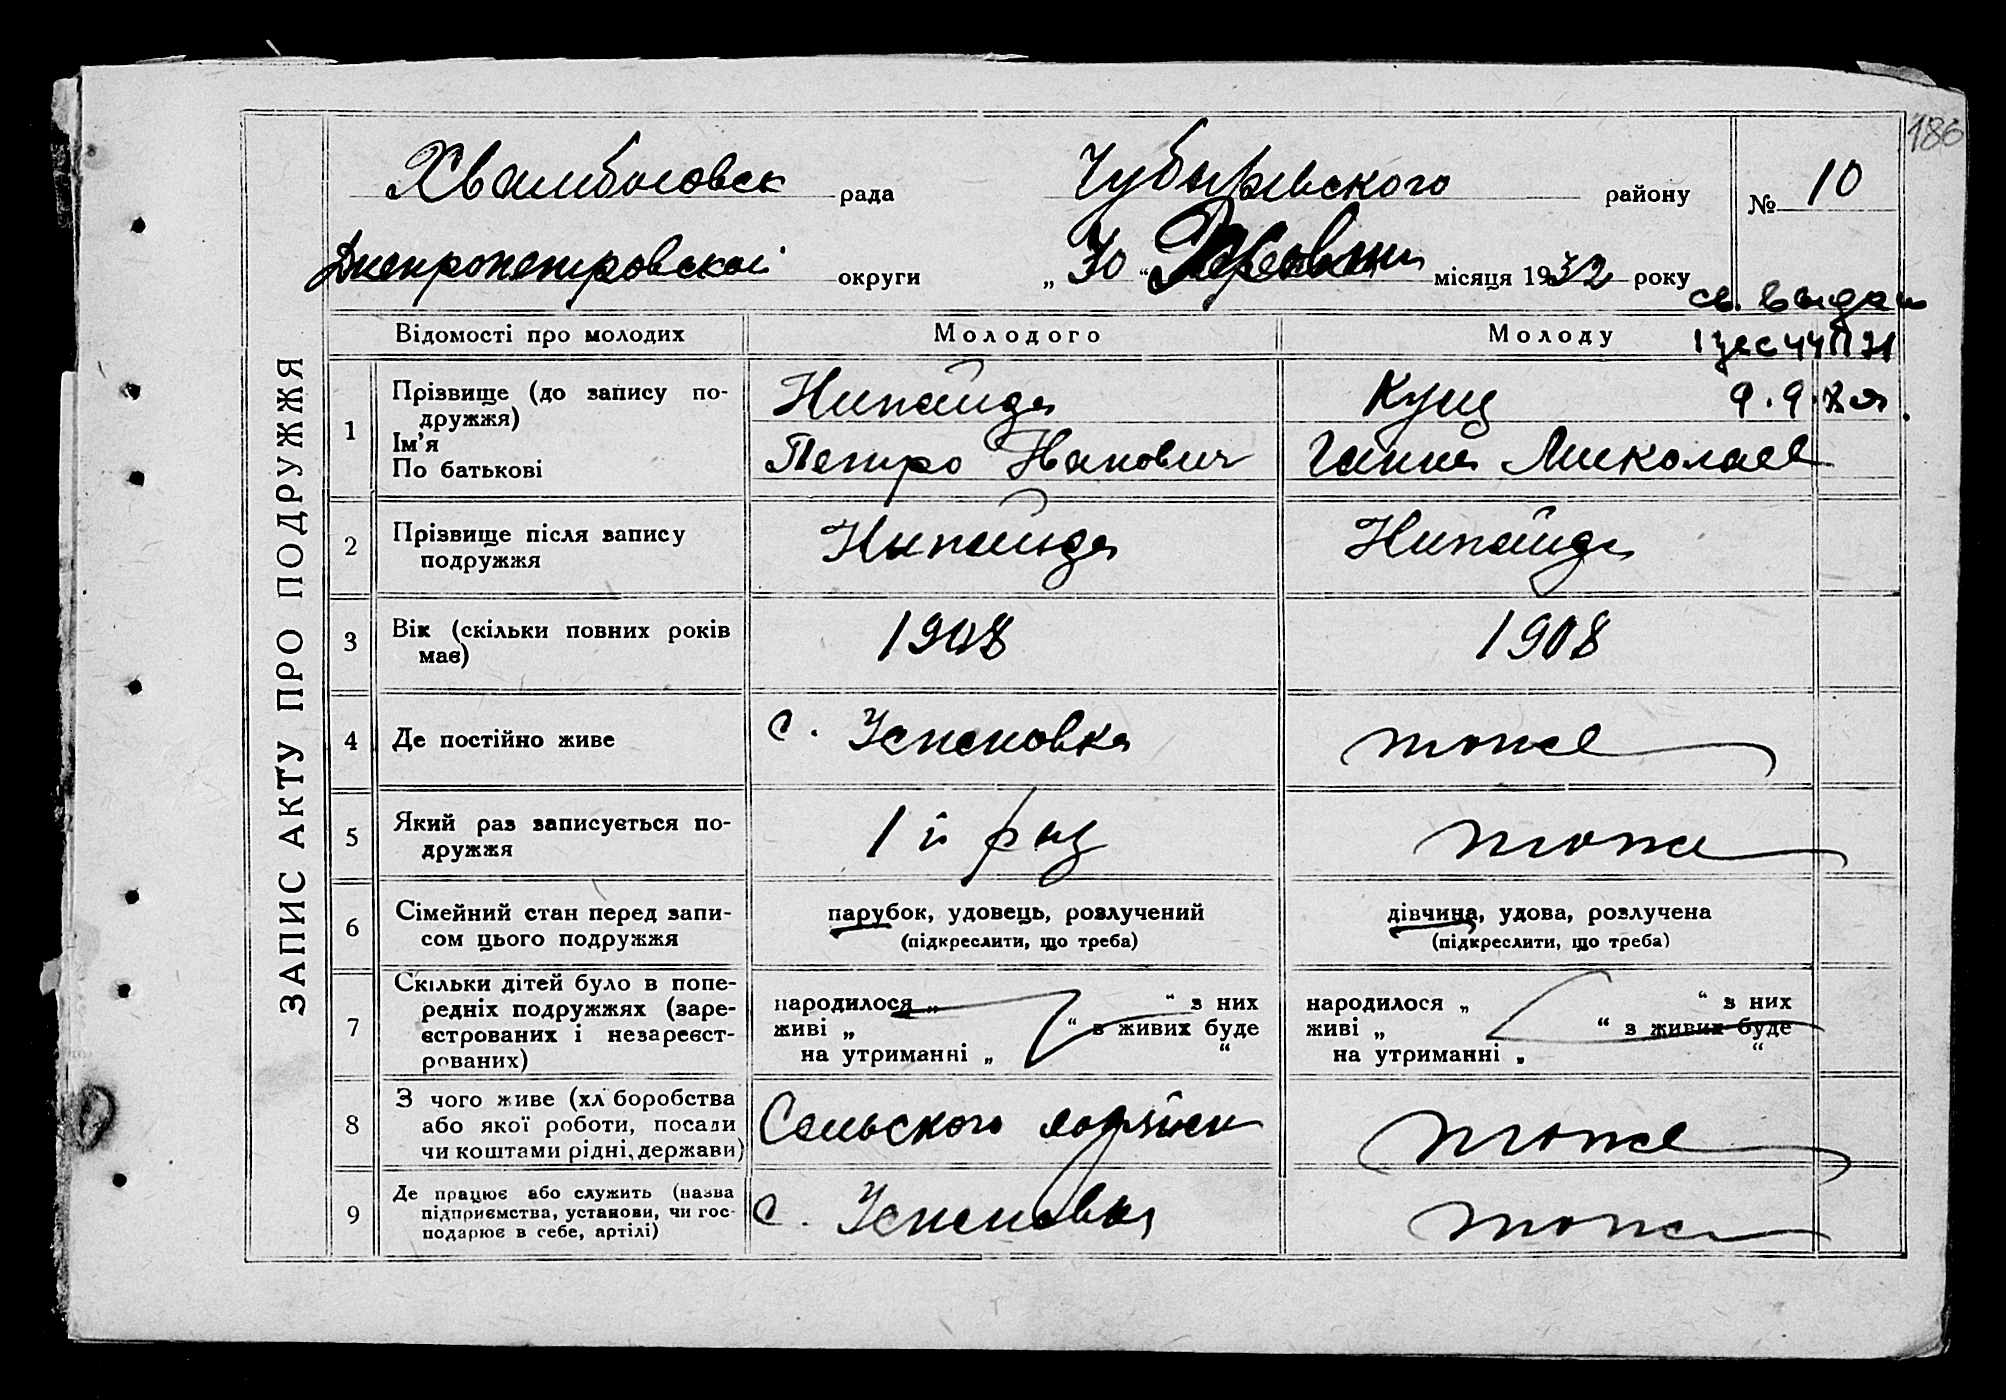 186
ЗАПИС АКТУ ПРО ПОДРУЖЖЯ
рада
Чубаревского району
№ 10
Днепропетровской округи
„ 30 “ місяця 1932 року
св. выдан
9.9.
Відомості про молодих
Молодого
Молоду
1
Прізвище (до запису по-
дружжя)
Ім'я
По батькові
Нипайда
Кущ
Петро Иванович
Ганна Миколаев
2
Прізвище після запису
подружжя
Нипайда
Нипайда
3
Вік (скільки повних років
має)
1908
1908
4
Де постійно живе
с. Успеновка
тоже
5
Який раз записується по-
дружжя
1 й раз
тоже
6
Сімейний стан перед запи-
сом цього подружжя
парубок, удовець, розлучений
(підкреслити, що треба)
дівчина, удова, розлучена
(підкреслити, що треба)
7
Скільки дітей було в попе-
редніх подружжях (заре-
єстрованих і незареєст-
рованих)
народилося „ “ з них
живі „ “ в живих буде
на утриманні „ “
народилося „ “ з них
живі „ “ з живих буде
на утриманні „ “
8
З чого живе (хл боробства
або якої роботи, посади
чи коштами рідні, держави)
Сельского хозяйсв
тоже
9
Де працює або служить (назва
підприємства, установи, чи гос-
подарює в себе, артілі)
с. Успеновка
тоже